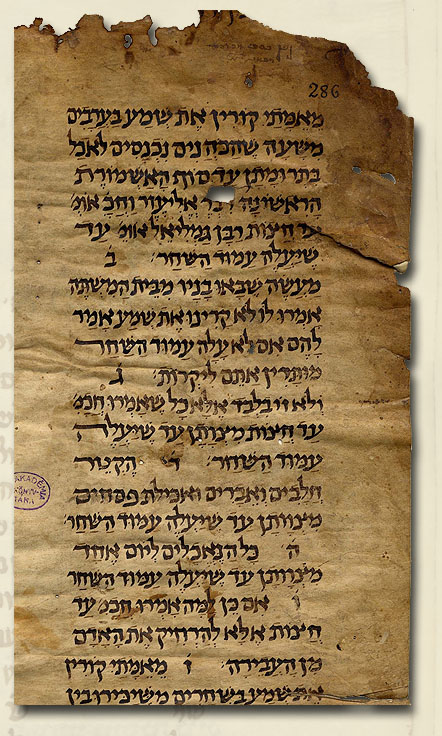 286
מאמתי קורין את שמע בערבים
משעה שהכהנים נכנסים לאכל
בתרומתן עד סוף האשמורת
הראשונה אליעזר וחכ׳ אומ׳
עד חיצות רבן גמליאל אומ׳ עד
שיעלה עמוד השחר׳ ב
מעשה שבאו בניו מבית המשתה
אמרו לו לא קרינו את שמע אמר
להם אם לא עלה עמוד השחר
מותרין אתם ליקרות׳ ג
ולא זו בלבד אלא כל שאמרו חכמ׳
עד חצות מיצותן עד שיעלה
עמוד השחר׳ ד הקטר
חלבים ואברים ואכילת פסחים
מיצוותן עד שיעלה עמוד השחר׳
ה כל הנאכלים ליום אחד
מיצוותן עד שיעלה עמוד השחר
אם כן למה אמרו חכמ׳ עד
חיצות אלא להרחיק את האדם
מן העבירה׳ ו מאמתי קורין
את שמע בשחרים משיכירו בין